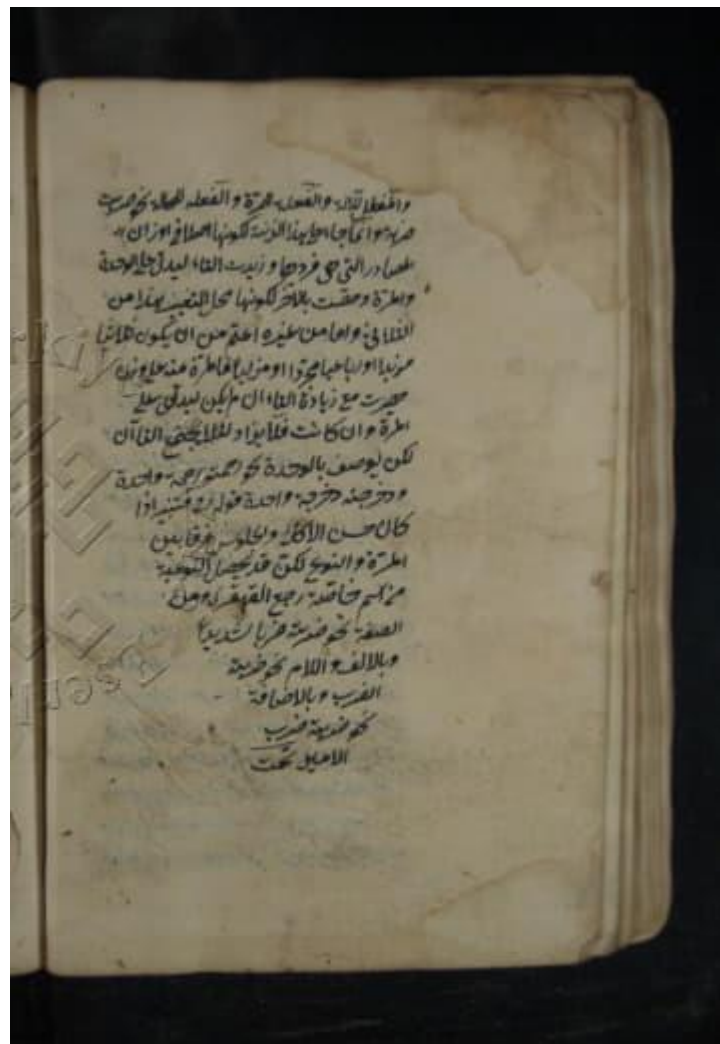 والمفعل للآلة والفعلة للمرة والفعلة للحالة نحو ضربت
ضربة وانما جاء على هذا الوزنة لكونها اصلا في اوزان
المصادر التي هي فروعها و زيدت التاء ليدل على الوحدة
والمرة وحقت بالآخر لكونها محل التغيير هذا من
الثلاثي واما من غيره اعم من ان يكون ثلاثيا
مزيدا او رباعيا مجردا او مزيدا فالمرة منه على وزن
مصدره مع زيادة التاء ان لم يكن ليدل على
المرة وان كانت فلا يزاد لئلا يجتمع التاآن
لكن يوصف بالوحدة نحو رحمته رحمة واحدة
ودحرجته دحرجة واحدة
كان حسن الاكلة والجلوس فرقا بين
المرة والنوع لكن قد يحصل النوعية
رجع القهقرى ومن
الصفة نحو ضربته ضربا شديدا
وبالالف واللام نحو ضربته
الضرب وبالاضافة
نحو ضربته ضرب
الامير تمت